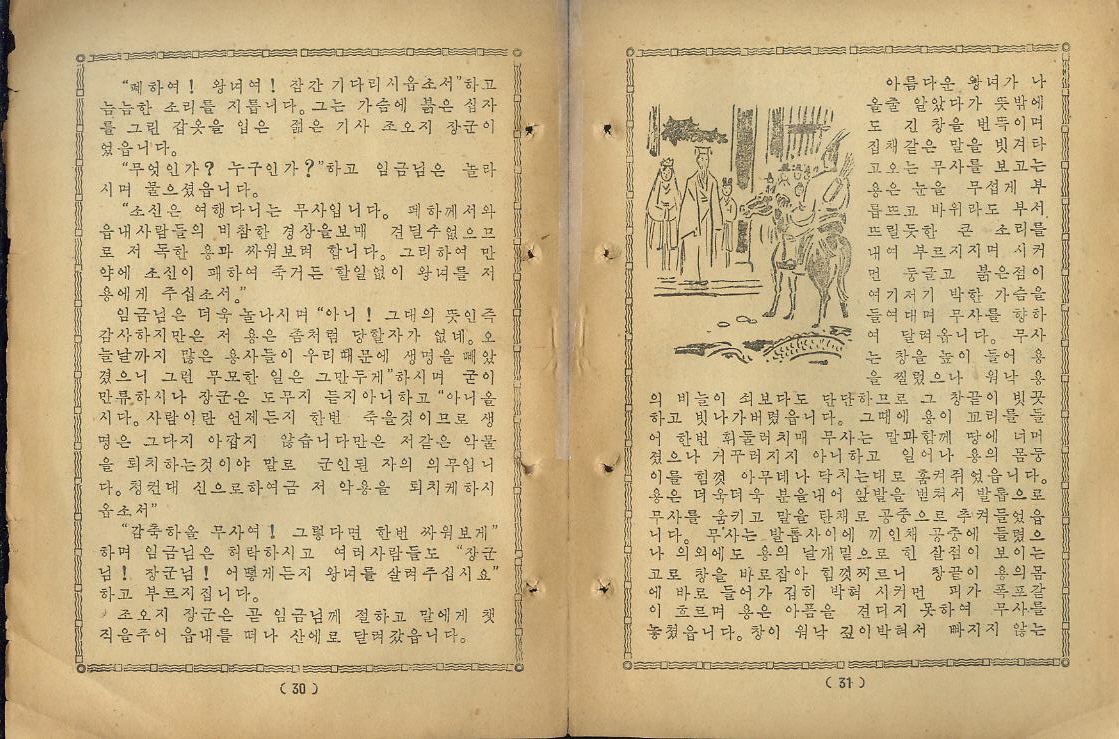 “폐하여! 왕녀여! 잠간 기다리시옵소서”하고
늠늠한 소리를 지릅니다. 그는 가슴에 붉은 십자
를 그린 갑옷을 입은 젊은 기사 조오지 장군이
었읍니다.
“무엇인가? 누구인가?”하고 임금님은 놀라
시며 물으셨읍니다.
“소신은 여행다니는 무사입니다. 폐하께서와
읍내사람들의 비참한 경상을보매 견딜수없으므
로 저 독한 용과 싸워보려 합니다. 그리하여 만
약에 소신이 패하여 죽거든 할일없이 왕녀를 저
용에게 주십소서.”
임금님은 더욱 놀나시며 “아니! 그대의 뜻인즉
감사하지만은 저 용은 좀처럼 당할자가 없네. 오
늘날까지 많은 용사들이 우리때문에 생명을 빼앗
겼으니 그런 무모한 일은 그만두게”하시며 굳이
만류하시나 장군은 도무지 듣지아니하고 “아니올
시다. 사람이란 언제든지 한번 죽을것이므로 생
명은 그다지 아깝지 않습니다만은 저같은 악물
을 퇴치하는것이야 말로 군인된 자의 의무입니
다. 청컨대 신으로하여금 저 악용을 퇴치케하시
옵소서”
“감축하올 무사여! 그렇다면 한번 싸워보게”
하며 임금님은 허락하시고 여러사람들도 “장군
님! 장군님! 어떻게든지 왕녀를 살려주십시요”
하고 부르지집니다.
조오지 장군은 곧 임금님께 절하고 말에게 챗
직을주어 읍내를 떠나 산에로 달려갔읍니다.
( 30 )
아름다운 왕녀가 나
올줄 알았다가 뜻밖에
도 긴 창을 번뜩이며
집채같은 말을 빗겨타
고오는 무사를 보고는
용은 눈을 무섭게 부
릅뜨고 바위라도 부서
뜨릴듯한 큰 소리를
내여 부르지지며 시커
먼 둥글고 붉은점이
여기저기 박한 가슴을
들여대며 무사를 향하
여 달려옵니다. 무사
는 창을 높이 들어 용
을 찔렀으나 워낙 용
의 비늘이 쇠보다도 단단하므로 그 창끝이 빗끗
하고 빗나가버렸읍니다. 그때에 용이 꼬리를 들
어 한번 휘둘러치매 무사는 말과함께 땅에 너머
졌으나 거꾸러지지 아니하고 일어나 용의 몸둥
이를 힘껏 아무데나 닥치는대로 훔켜쥐었읍니다.
용은 더욱더욱 분을내어 앞발을 벋쳐서 발톱으로
무사를 움키고 말을 탄채로 공중으로 추켜들었읍
니다. 무사는 발톱사이에 끼인채 공중에 들렸으
나 의외에도 용의 날개밑으로 힌 살점이 보이는
고로 창을 바로잡아 힘껏찌르니 창끝이 용의몸
에 바로 들어가 깁히 박혀 시커먼 피가 폭포같
이 흐르며 용은 아픔을 견디지 못하여 무사를
놓쳤읍니다. 창이 워낙 깊이박혀서 빠지지 않는
( 31 )